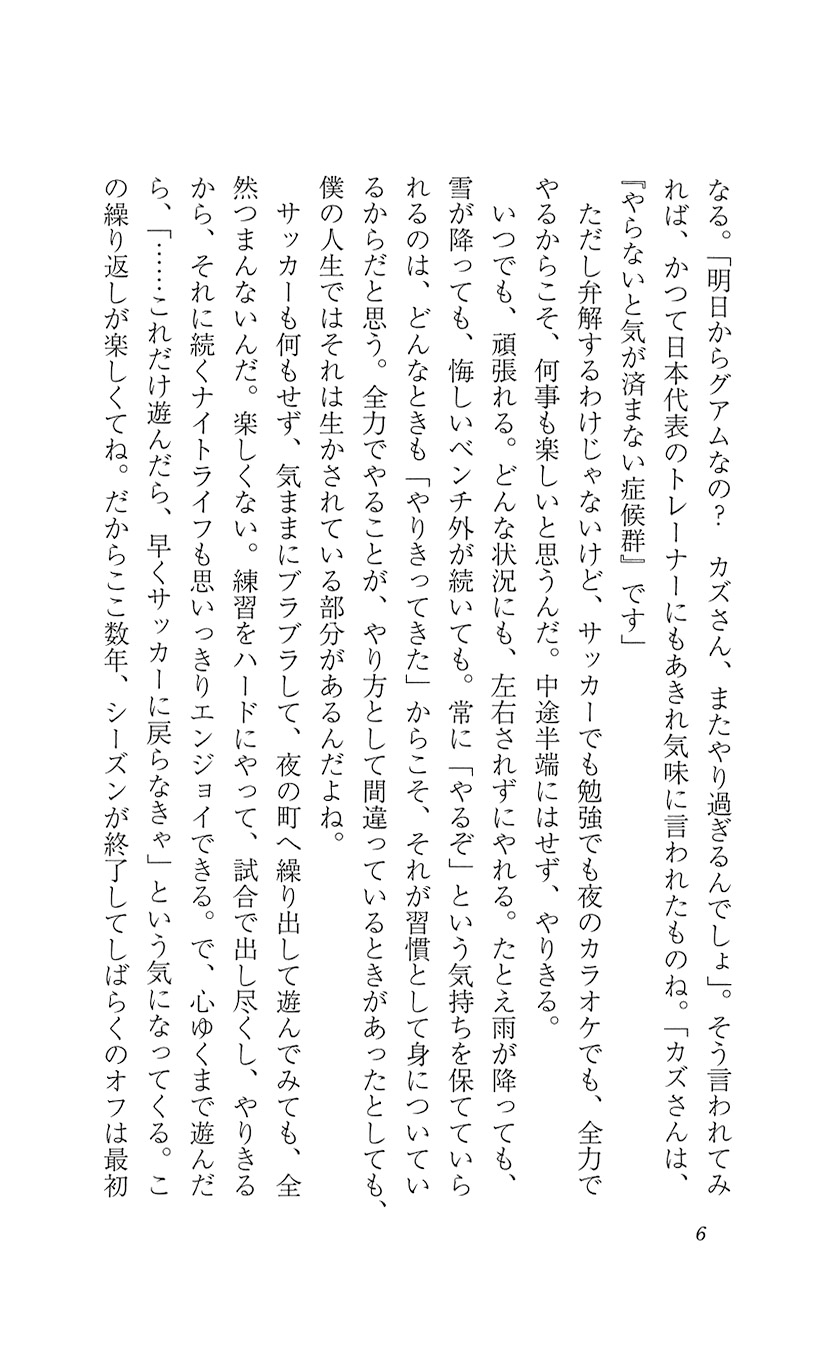 なる。「明日からグアムなの？　カズさん、またやり過ぎるんでしょ」。そう言われてみ
れば、かつて日本代表のトレーナーにもあきれ気味に言われたものね。「カズさんは、
『やらないと気が済まない症候群』です」
　ただし弁解するわけじゃないけど、サッカーでも勉強でも夜のカラオケでも、全力で
やるからこそ、何事も楽しいと思うんだ。中途半端にはせず、やりきる。
　いつでも、頑張れる。どんな状況にも、左右されずにやれる。たとえ雨が降っても、
雪が降っても、悔しいベンチ外が続いても。常に「やるぞ」という気持ちを保てていら
れるのは、どんなときも「やりきってきた」からこそ、それが習慣として身についてい
るからだと思う。全力でやることが、やり方として間違っているときがあったとしても、
僕の人生ではそれは生かされている部分があるんだよね。
　サッカーも何もせず、気ままにブラブラして、夜の町へ繰り出して遊んでみても、全
然つまんないんだ。楽しくない。練習をハードにやって、試合で出し尽くし、やりきる
から、それに続くナイトライフも思いっきりエンジョイできる。で、心ゆくまで遊んだ
ら、「……これだけ遊んだら、早くサッカーに戻らなきゃ」という気になってくる。こ
の繰り返しが楽しくてね。だからここ数年、シーズンが終了してしばらくのオフは最初
6